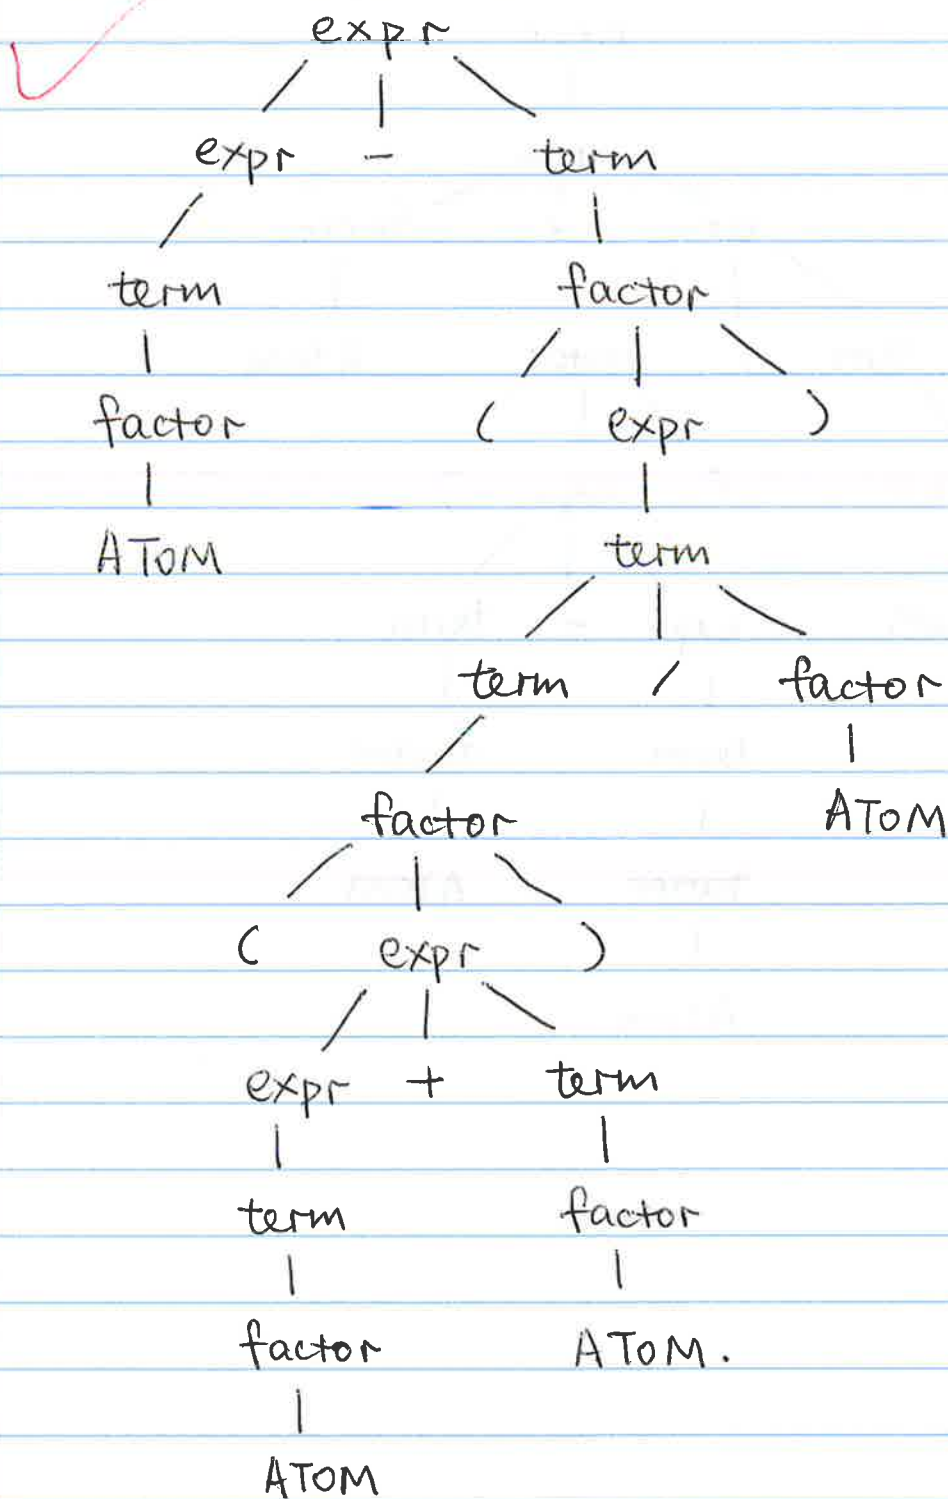 expr
expr - term
term factor
factor ( expr )
ATOM term
term / factor
factor ATOM
( expr )
expr + term
term factor
factor ATOM.
ATOM